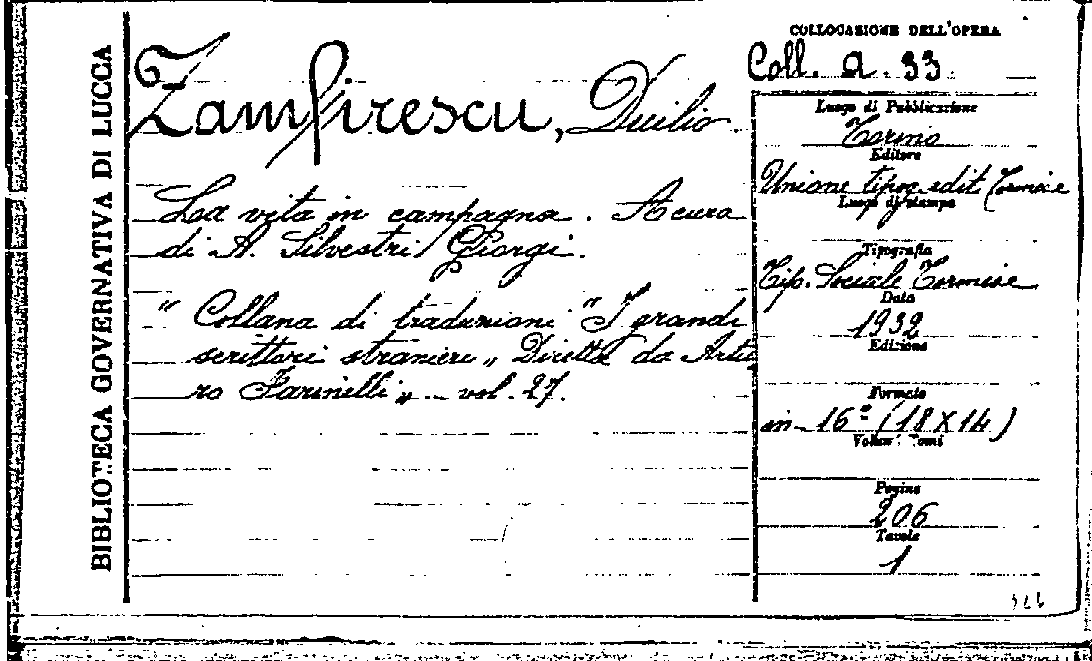 BIBLIOTECA GOVERNATIVA DI LUCCA
Zamfirescu, Duilio
La vita in campagna. A cura
di A. Silvestri Giorgi.
" Collana di traduzioni "I grandi
scrittori stranieri „ Diretta da Artu
ro Farinelli „ - vol. 27.
COLLOCAZIONE DELL'OPERA
Coll. a. 33.
Luogo di Pubblicazione
Torino
Editore
Unione tipog. edit. Torinese
Luogo di stampa
Tipografia
Tip. Sociale Torinese
Data
1932
Edizione
Formato
in-16º (18X14)
Volumi Tomi
Pagine
206
Tavole
1